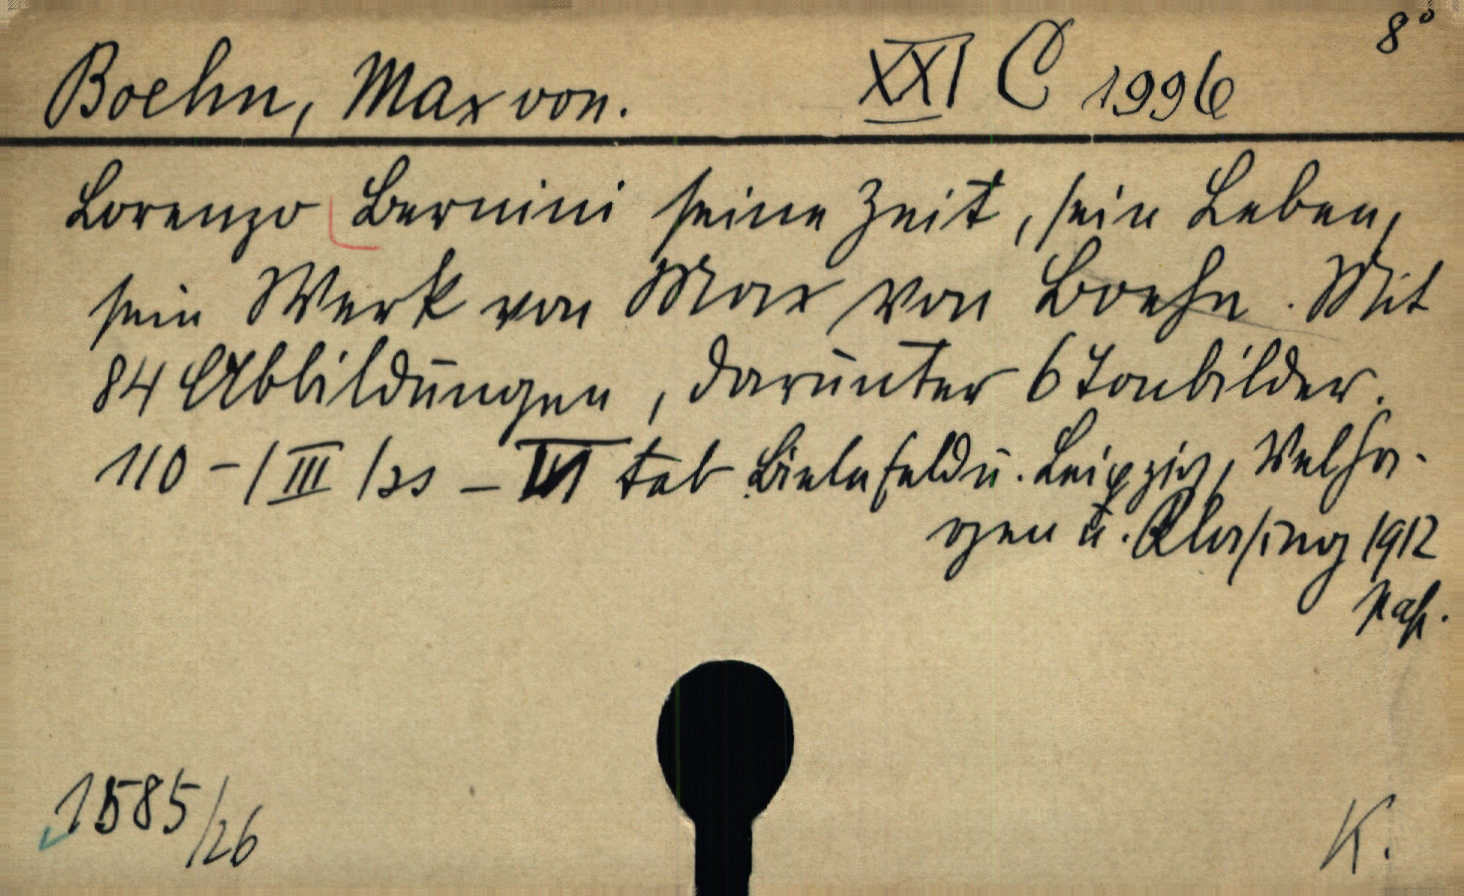 8°
Boehn, Max von. XXI C 1996
Lorenzo Bernini seine Zeit, sein Leben,
sein Werk von Max von Boehn. Mit
84 Abbildungen, darunter 6 Tonbilder.
110 - /III/ ss - VI tab Bielefeld u. Leipzig, Velha-
gen u. Klasing 1912
1585/26
K.